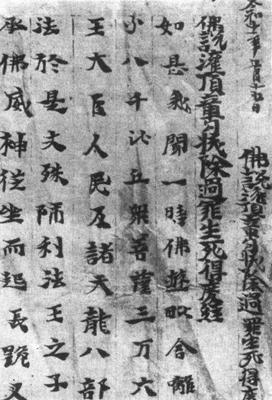 佛說灌頂章句拔除過罪生死得度
佛說灌頂章句拔除過罪生死得度經
如是我聞一時佛遊毗舍離
与八千比丘衆菩薩三万六
王大臣人民及諸天龍八部
法於是文殊師利法王之子
承佛威神從坐而起長跪叉